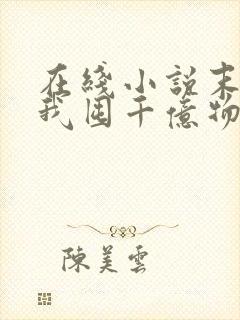 在线小说末
我囤千億物
陳美雲